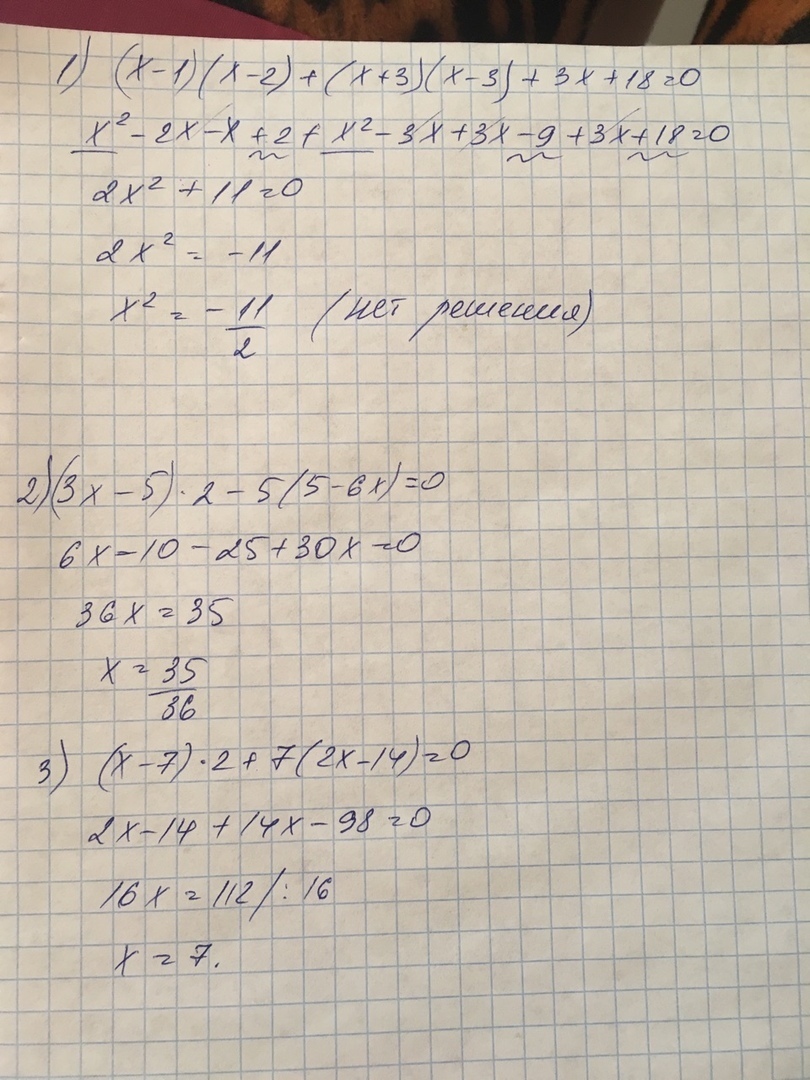 1) (x-1)(x-2)+(x+3)(x-3)+3x+18=0
x²-2x-x+2+x²-3x+3x-9+3x+18=0
2x²+11=0
2x²=-11
x²=-11/2 (нет решения)
2)(3x-5)·2-5(5-6x)=0
6x-10-25+30x=0
36x=35
x=35/36
3) (x-7)·2+7(2x-14)=0
2x-14+14x-98=0
16x=112/:16
x=7.